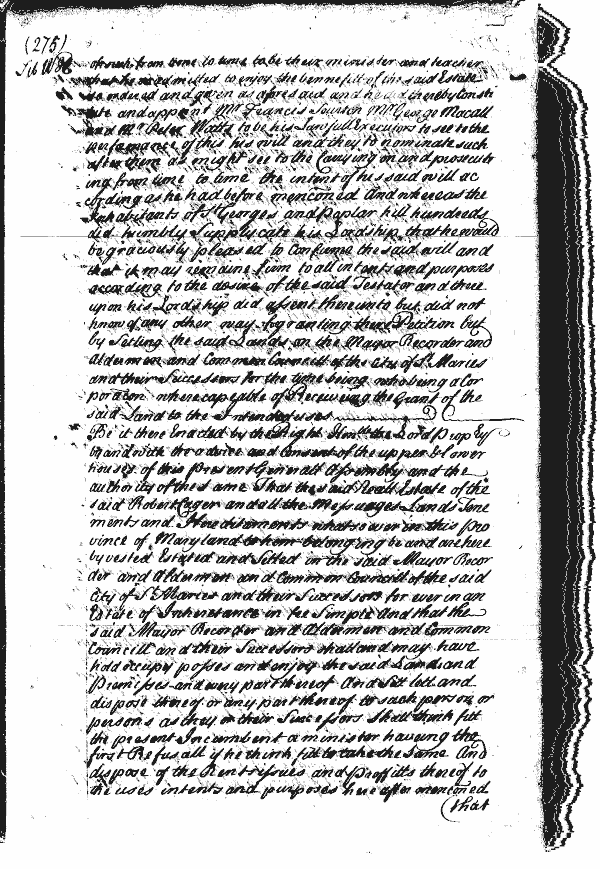 (275)
Lib W H
from time to time to be their minister and teacher
that he be admitted to enjoy the bennefitt of the said Estate
so ordered and given as afores aid and he did thereby Consti
tute and appoint Mr Francis Sourton Mr George Macall
and Mr Peter Watts to be his Lawfull Executors to see to the
performance of this his will and they to nominate such
after them as might see to the Carrying on and prosecut
ing from time to time the intent of his said will ac
cording as he had before menconed And whereas the
Inhabitants of St Georges and Poplar hill hundreds
did humbly Supplycate his Lordship that he would
be graciously pleased to Confirme the said will and
that it may remaine firm to all intents and purposes
according to the desire of the said Testator and there
upon his Lordship did assent thereunto but did not
know of any other way for granting there Petition but
by Setling the said Lands on the Mayor Recorder and
Aldermen and Common Councill of the City of St Maries
and their Successors for the time being who being a Cor
poracon where capeable of Receiveing the Grant of the
said Land to the Intended uses
Be it there Enacted by the Right Honble the Lord Propry
by and with the advice and Consent of the upper & lower
houses of this Present Generall Assembly and the
authority of the same That the said Reall Estate of the
said Robert Cager and all the Messuages Lands Tene
ments and Hereditaments whatsoever in this Pro
vince of Maryland to him belonging be and are here
by vested Estated and Setled in the said Mayor Recor
der and Aldermen and Common Councill of the said
City of St Maries and their Successors for ever in an
Estate of Inheretance in fee Simple And that the
said Mayor Recorder and Aldermen and Common
Councill and their Successors shall and may have
hold occupy posses and enjoy the said Lands and
Premisses and every part thereof And Sett lett and
dispose thereof or any part thereof to such person or
persons as they or their Successors Shall think fitt
the present Incumbent a minister haveing the
first Refusall if he think fitt to take the Same And
dispose of the Rents issues and Proffitts thereof to
the uses intents and purposes here after menconed
(that